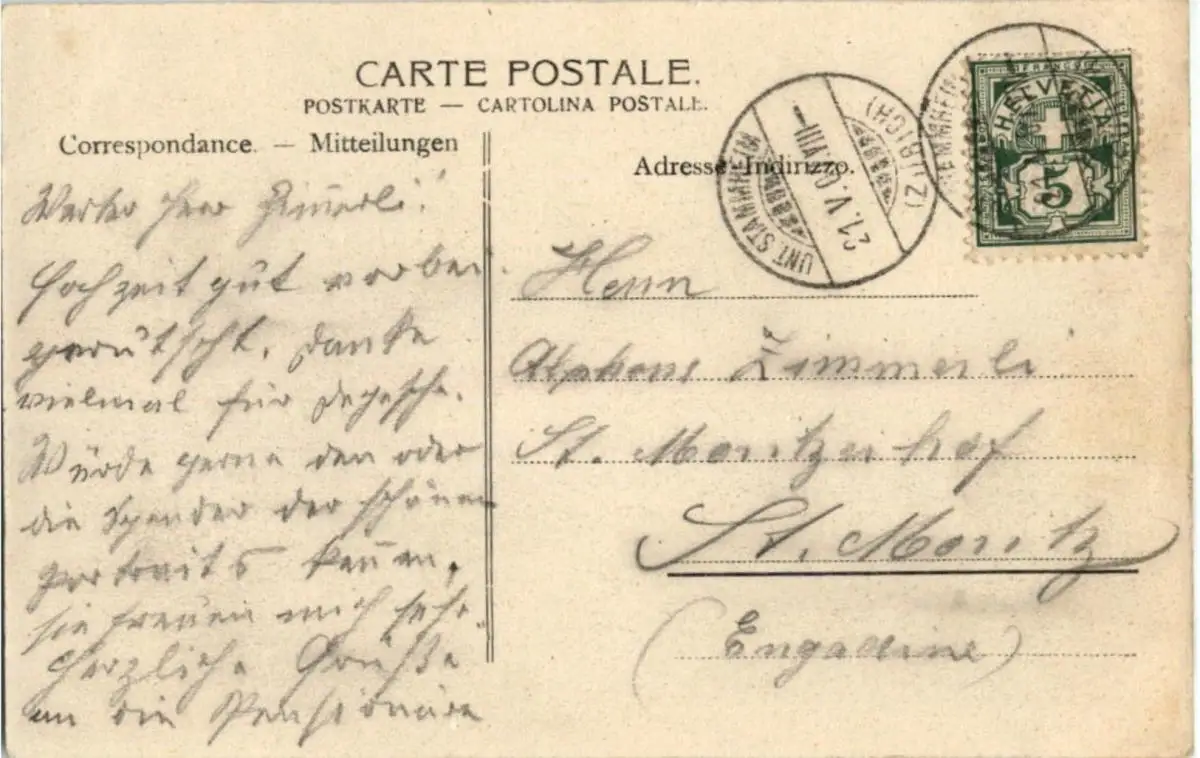 CARTE POSTALE.
POSTKARTE — CARTOLINA POSTALE.
Correspondance. — Mitteilungen
Adresse-Indirizzo.
Werter Herr Zim̅erli!
Hochzeit gut vorbei
gerutscht. Danke
vielmal für Depesche.
Würde gerne den oder
die Spender der schönen
Portraits kennen,
sie freuen mich sehr.
Herzliche Grüße
an die Pensionäre
Herrn
Alphons Zimmerli
St. Moritzerhof
St. Moritz
(Engadine)
UNT. STAMMHEIM
21.V.07.VIII
(ZÜRICH)
FRANCO
HELVETIA
5